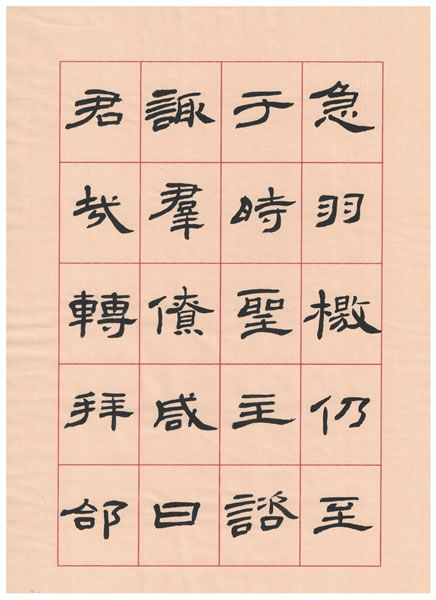 急羽檄仍至
于時聖主諮
諏羣僚咸曰
君哉轉拜郃